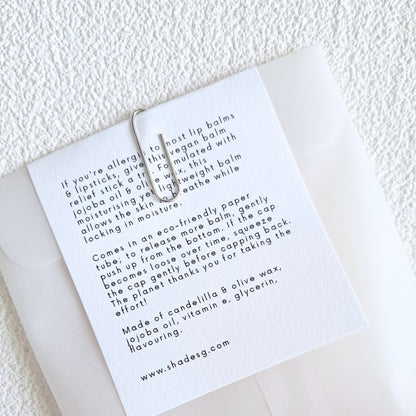 If you're allergic to most lip balms
& lipsticks, give this vegan balm
relief stick a try. Formulated with
jojoba oil & olive wax, this
moisturising yet lightweight balm
allows the skin to breathe while
locking in moisture.
Comes in an eco-friendly paper
tube; to release more balm, gently
push up from the bottom. If the cap
becomes loose over time, squeeze
the cap gently before capping back.
The planet thanks you for taking the
effort!
Made of candelilla & olive wax,
jojoba oil, vitamin e, glycerin,
flavouring.
www.shadesg.com